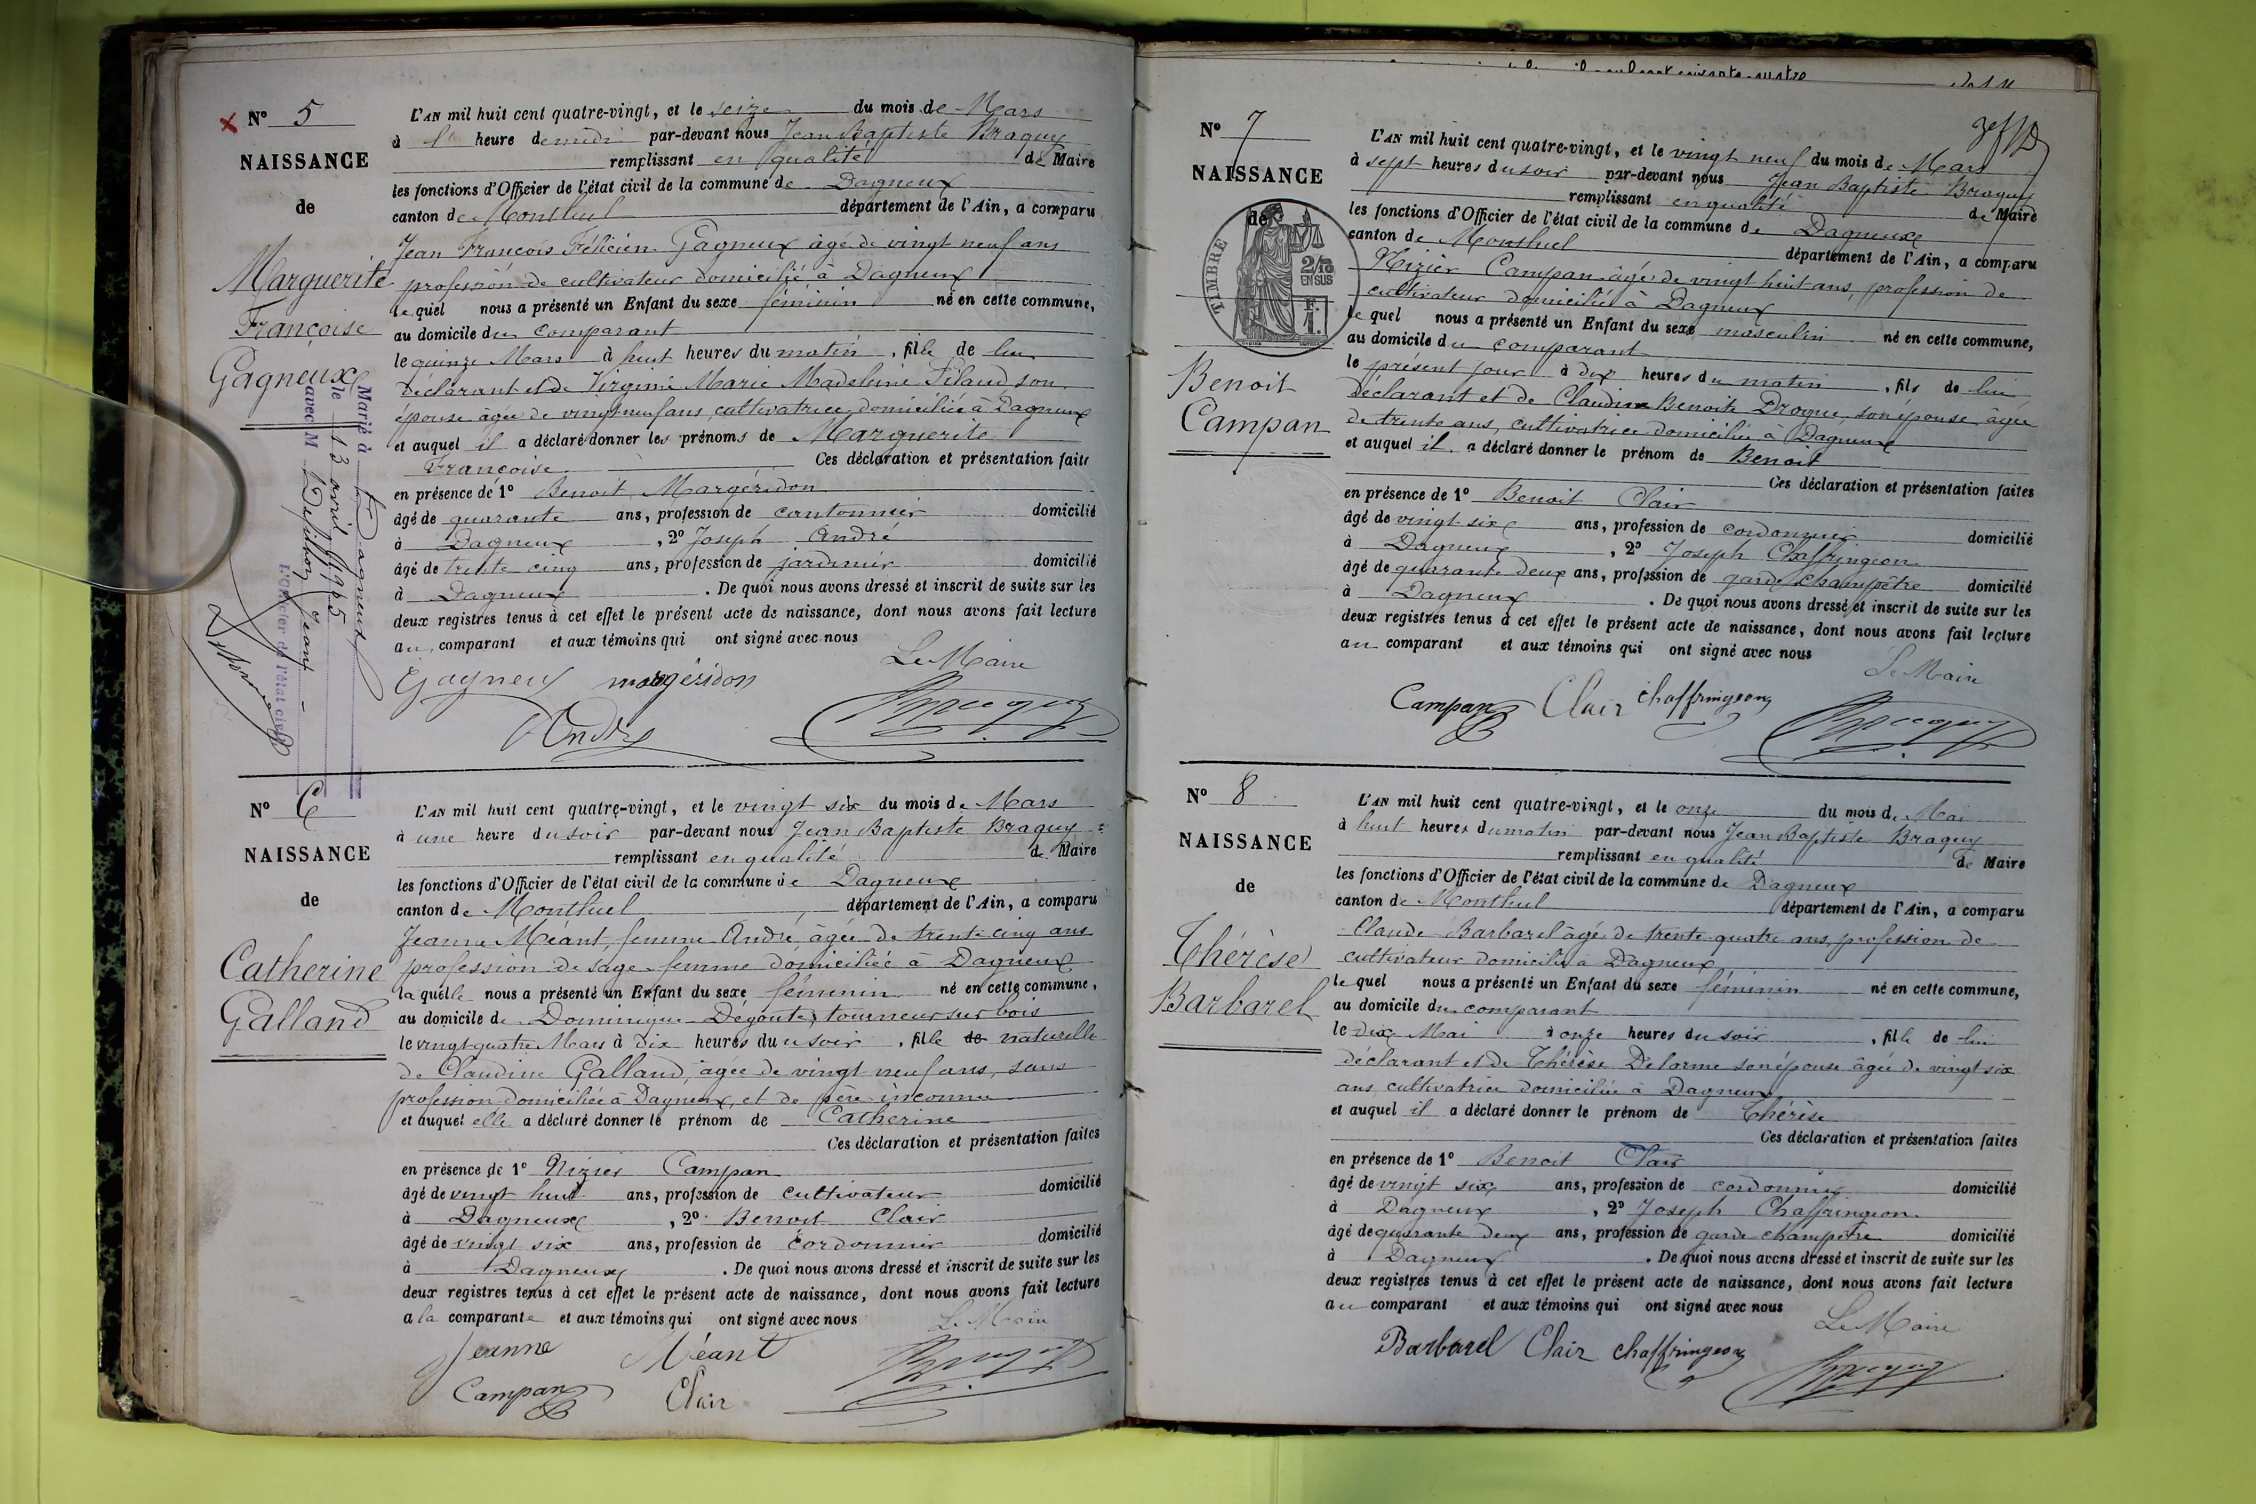 N° 5
NAISSANCE
de
Marguerite
Françoise
Gagneux
Marié à Dagneux
le 13 avril 1905
avec M Depillon Jean
L'Officier de l'état civil
L'AN mil huit cent quatre-vingt, et le seize du mois de Mars
à l' heure de midi par-devant nous Jean Baptiste Braguy
remplissant en qualité de Maire
les fonctions d'Officier de l'état civil de la commune de Dagneux
canton de Montluel département de l'Ain, a comparu
Jean François Félicien Gagneux âgé de vingt neuf ans
profession de cultivateur domicilié à Dagneux
le quel nous a présenté un Enfant du sexe féminin né en cette commune,
au domicile du comparant
le quinze Mars à huit heures du matin, fille de lui
déclarant et de Virginie Marie Madeleine son
épouse âgée de vingt neuf ans, cultivatrice domiciliée à Dagneux
et auquel il a déclaré donner les prénoms de Marguerite
Françoise Ces déclaration et présentation faites
en présence de 1° Benoit Margéridon
âgé de quarante ans, profession de cantonnier domicilié
à Dagneux, 2° Joseph André
âgé de trente cinq ans, profession de jardinier domicilié
à Dagneux. De quoi nous avons dressé et inscrit de suite sur les
deux registres tenus à cet effet le présent acte de naissance, dont nous avons fait lecture
au comparant et aux témoins qui ont signé avec nous
Le Maire
Gagneux margéridon
André Braguy
N° 6
NAISSANCE
de
Catherine
Galland
L'AN mil huit cent quatre-vingt, et le vingt six du mois de Mars
à une heure du soir par-devant nous Jean Baptiste Braguy
remplissant en qualité de Maire
les fonctions d'Officier de l'état civil de la commune de Dagneux
canton de Montluel département de l'Ain, a comparu
Jeanne Méant, femme André, âgée de trente cinq ans
profession de sage-femme domiciliée à Dagneux
la quelle nous a présenté un Enfant du sexe féminin né en cette commune,
au domicile de Dominique Dégoute, tourneur sur bois
le vingt quatre Mars à dix heures du soir, fille de naturelle
de Claudine Galland, âgée de vingt neuf ans, sans
profession domiciliée à Dagneux, et de père inconnu
et auquel elle a déclaré donner le prénom de Catherine
Ces déclaration et présentation faites
en présence de 1° Nizier Campan
âgé de vingt huit ans, profession de cultivateur domicilié
à Dagneux, 2° Benoit Clair
âgé de vingt six ans, profession de Cordonnier domicilié
à Dagneux. De quoi nous avons dressé et inscrit de suite sur les
deux registres tenus à cet effet le présent acte de naissance, dont nous avons fait lecture
a la comparante et aux témoins qui ont signé avec nous
Le Maire
Jeanne Méant
Campan Clair Braguy
N° 7
NAISSANCE
de
TIMBRE
2/10
EN SUS
F.
1.
Benoit
Campan
L'AN mil huit cent quatre-vingt, et le vingt neuf du mois de Mars
à sept heures du soir par-devant nous Jean Baptiste Braguy
remplissant en qualité de Maire
les fonctions d'Officier de l'état civil de la commune de Dagneux
canton de Montluel département de l'Ain, a comparu
Nizier Campan âgé de vingt huit ans, profession de
cultivateur domicilié à Dagneux
le quel nous a présenté un Enfant du sexe masculin né en cette commune,
au domicile du comparant
le présent jour à dix heures du matin, fils de lui
déclarant et de Claudine Benoite Drogue, son épouse, âgée
de trente ans, cultivatrice domiciliée à Dagneux
et auquel il a déclaré donner le prénom de Benoit
Ces déclaration et présentation faites
en présence de 1° Benoit Clair
âgé de vingt six ans, profession de cordonnier domicilié
à Dagneux, 2° Joseph Chaffringeon
âgé de quarante deux ans, profession de garde champêtre domicilié
à Dagneux. De quoi nous avons dressé et inscrit de suite sur les
deux registres tenus à cet effet le présent acte de naissance, dont nous avons fait lecture
au comparant et aux témoins qui ont signé avec nous
Le Maire
Campan Clair chaffringeon
Braguy
N° 8
NAISSANCE
de
Thérèse
Barbarel
L'AN mil huit cent quatre-vingt, et le onze du mois de Mai
à huit heures du matin par-devant nous Jean Baptiste Braguy
remplissant en qualité de Maire
les fonctions d'Officier de l'état civil de la commune de Dagneux
canton de Montluel département de l'Ain, a comparu
Claude Barbarel âgé de trente quatre ans, profession de
cultivateur domicilié à Dagneux
le quel nous a présenté un Enfant du sexe féminin né en cette commune,
au domicile du comparant
le dix Mai à onze heures du soir, fille de lui
déclarant et de Thérèse Delorme son épouse âgée de vingt six
ans, cultivatrice domiciliée à Dagneux
et auquel il a déclaré donner le prénom de Thérèse
Ces déclaration et présentation faites
en présence de 1° Benoit Clair
âgé de vingt six ans, profession de cordonnier domicilié
à Dagneux, 2° Joseph Chaffringeon
âgé de quarante deux ans, profession de garde champêtre domicilié
à Dagneux. De quoi nous avons dressé et inscrit de suite sur les
deux registres tenus à cet effet le présent acte de naissance, dont nous avons fait lecture
au comparant et aux témoins qui ont signé avec nous
Le Maire
Barbarel Clair chaffringeon
Braguy